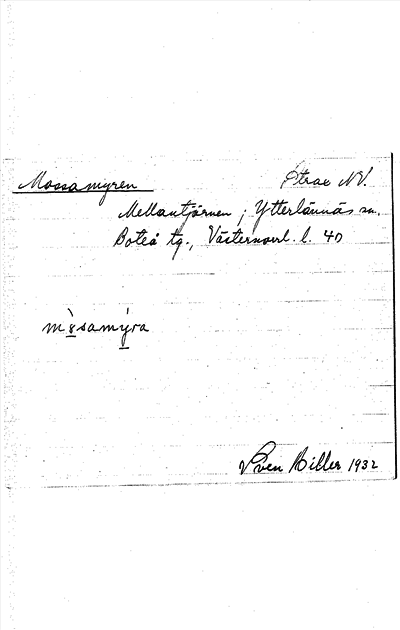 Mossamyren Strax NV.
Mellantjärnen ; Ytterlännäs sn.
Boteå tg., Västernorrl. l. 40
mòsamýra
Sven Hiller 1932